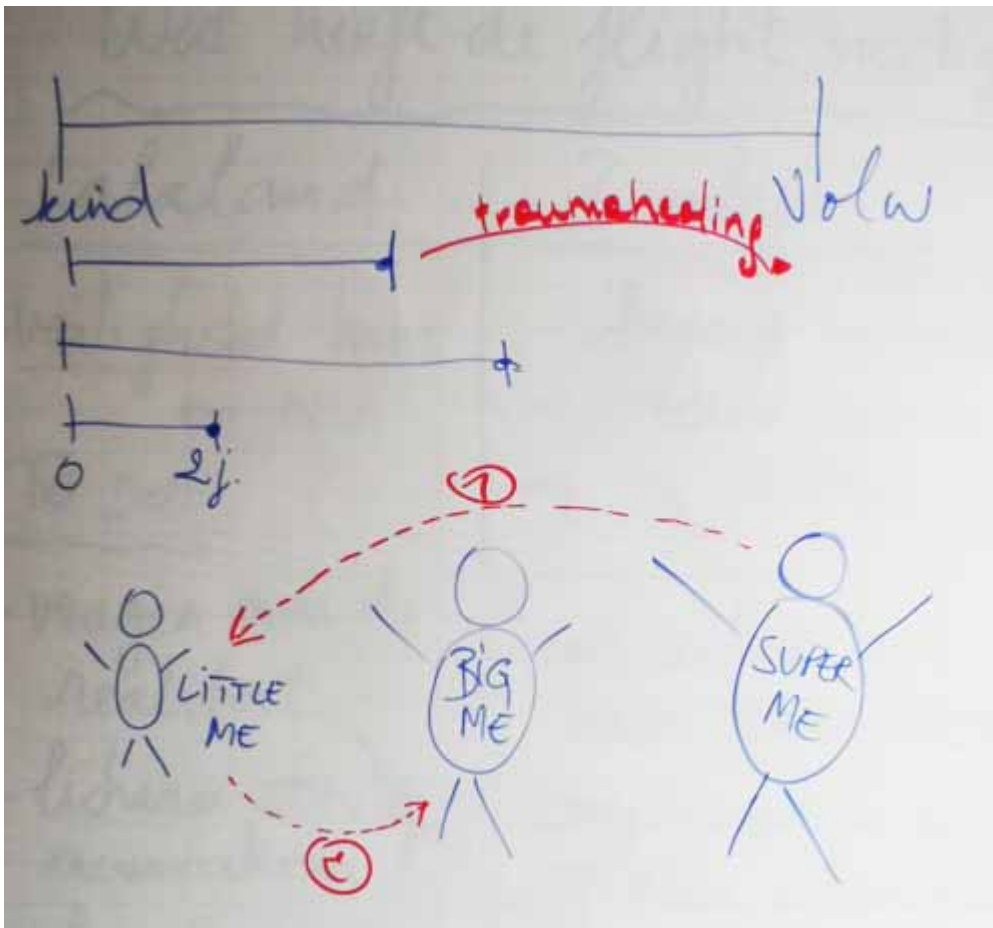 kind
Volw
traumahealing
0 2j.
1
LITTLE
ME
BIG
ME
SUPER
ME
2